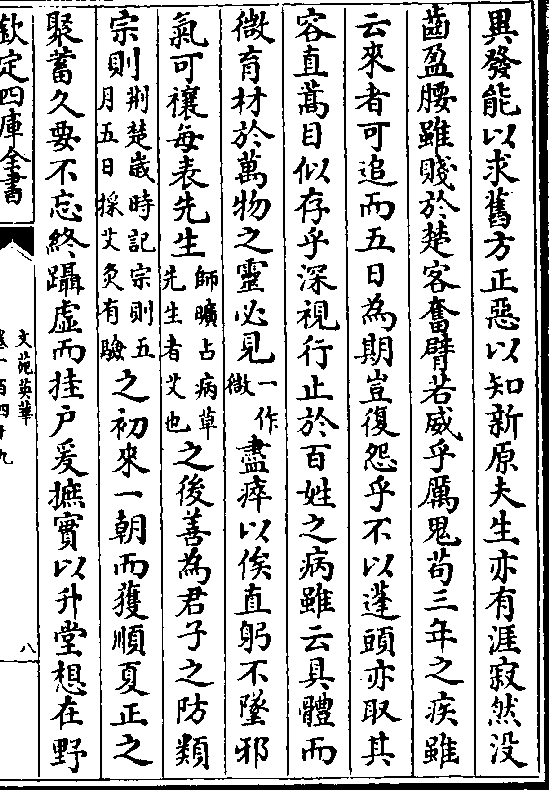 異發能以求舊方正惡以知新原夫生亦有涯寂然没
齒盈腰雖賤於楚客奮臂若威乎厲鬼苟三年之疾雖
云來者可追而五日為期豈復怨乎不以蓬頭亦取其
容直蒿目似存乎深視行止於百姓之病雖云具體而
微育材於萬物之靈必見一作微盡瘁以俟直躬不墜邪
氣可禳每表先生師曠占病草先生者艾也之後善為君子之防類
宗則荆楚歳時記宗則五月五日採艾灸有驗之初來一朝而獲順夏正之
聚蓄久要不忘終躡虚而挂户爰摭實以升堂想在野
欽定四庫全書
文苑英華
卷一百四十九
八